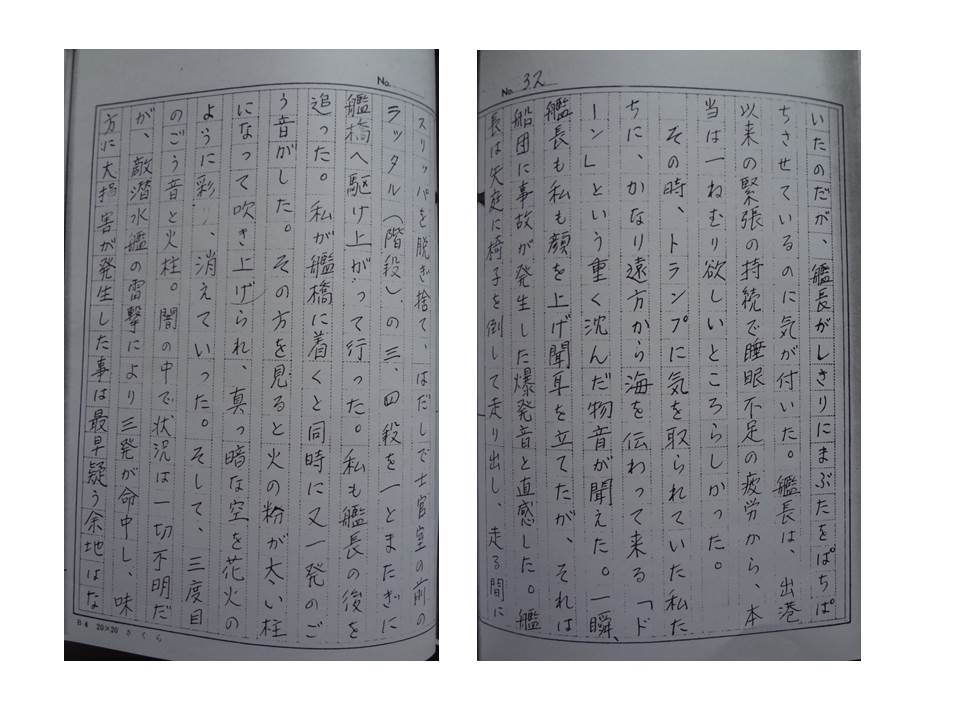 No. 32
いたのだが、艦長がしきりにまぶたをぱちぱ
ちさせているのに気が付いた。艦長は、出港
以来の緊張の持続で睡眠不足の疲労から、本
当は一ねむり欲しいところらしかった。
その時、トランプに気を取られていた私た
ちに、かなり遠方から海を伝わって来る「ド
ーン」という重く沈んだ物音が聞えた。一瞬、
艦長も私も顔を上げ聞耳を立てたが、それは
船団に事故が発生した爆発音と直感した。艦
長は矢庭に椅子を倒して走り出し、走る間に
No.
スリッパを脱ぎ捨て、はだしで士官室の前の
ラッタル(階段)の三、四段を一とまたぎに
艦橋へ駆け上がって行った。私も艦長の後を
追った。私が艦橋に着くと同時に又一発のご
う音がした。その方を見ると火の粉が太い柱
になって吹き上げられ、真っ暗な空を花火の
ように彩り、消えていった。そして、三度目
のごう音と火柱。闇の中で状況は一切不明だ
が、敵潜水艦の雷撃により三発が命中し、味
方に大損害が発生した事は最早疑う余地はな
B4 20×20 さくら